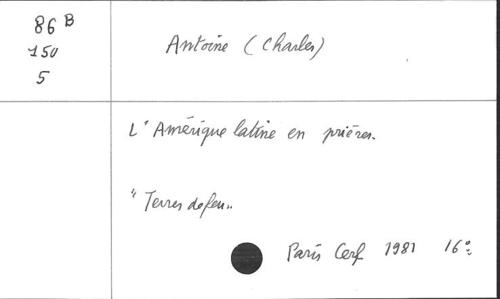 86 B
150
5
Antoine (Charles)
L'Amérique latine en prières.
"Terres de feu"
Paris Cerf 1981 16°